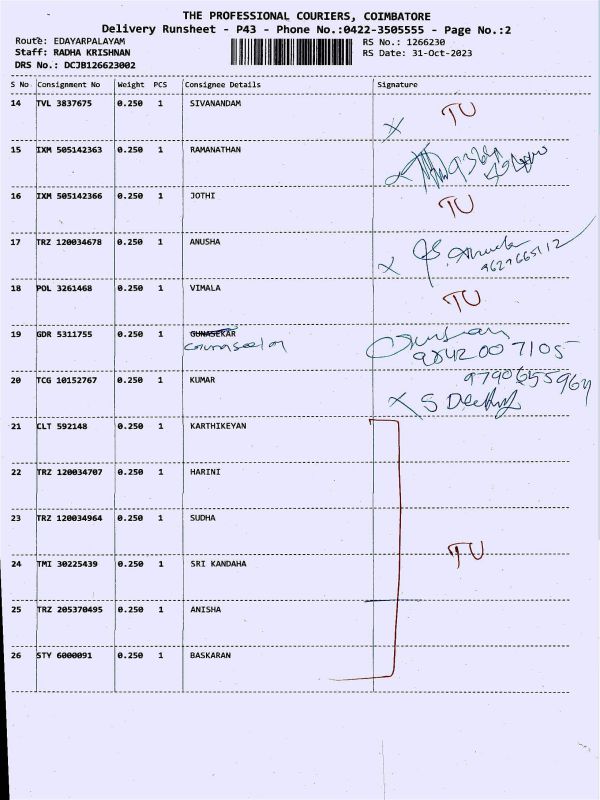 THE PROFESSIONAL COURIERS, COIMBATORE
Delivery Runsheet - P43 - Phone No.:0422-3505555 - Page No.:2
Route: EDAYARPALAYAM RS No.: 1266230
Staff: RADHA KRISHNAN RS Date: 31-Oct-2023
DRS No.: DCJB126623002
S No Consignment No Weight PCS Consignee Details Signature
14 TVL 3837675 0.250 1 SIVANANDAM TU
X
15 IXM 505142363 0.250 1 RAMANATHAN
16 IXM 505142366 0.250 1 JOTHI TU
17 TRZ 120034678 0.250 1 ANUSHA
X
18 POL 3261468 0.250 1 VIMALA TU
19 GDR 5311755 0.250 1 GUNASEKAR
9842007105
20 TCG 10152767 0.250 1 KUMAR
X S
21 CLT 592148 0.250 1 KARTHIKEYAN
22 TRZ 120034707 0.250 1 HARINI
23 TRZ 120034964 0.250 1 SUDHA
TU
24 TMI 30225439 0.250 1 SRI KANDAHA
25 TRZ 205370495 0.250 1 ANISHA
26 STY 6000091 0.250 1 BASKARAN